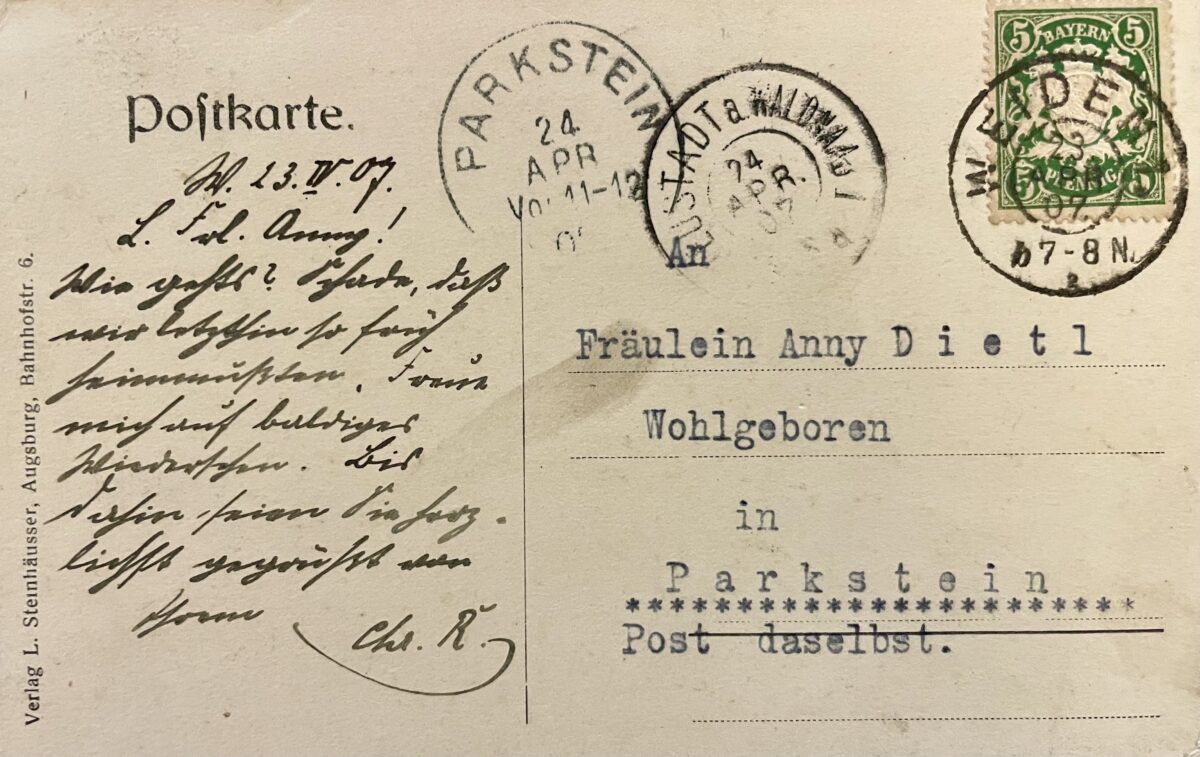 Postkarte.
W. 23. IV. 07.
L. Frl. Anny!
Wie gehts? Schade, daß
wir letzthin so früh
heimmußten. Freue
mich auf baldiges
Wiedersehen. Bis
dahin seien Sie herz-
lichst gegrüßt von
Ihrem
Chr. R.
Verlag L. Steinhäusser, Augsburg, Bahnhofstr. 6.
PARKSTEIN
24
APR
11-12
NEUSTADT a. WALDNAAB
24
APR.
07
5 BAYERN 5
PFENNIG
WEIDEN
23
APR
07
7-8 N.
2
An
Fräulein Anny Dietl
Wohlgeboren
in
Parkstein
**********************
Post daselbst.